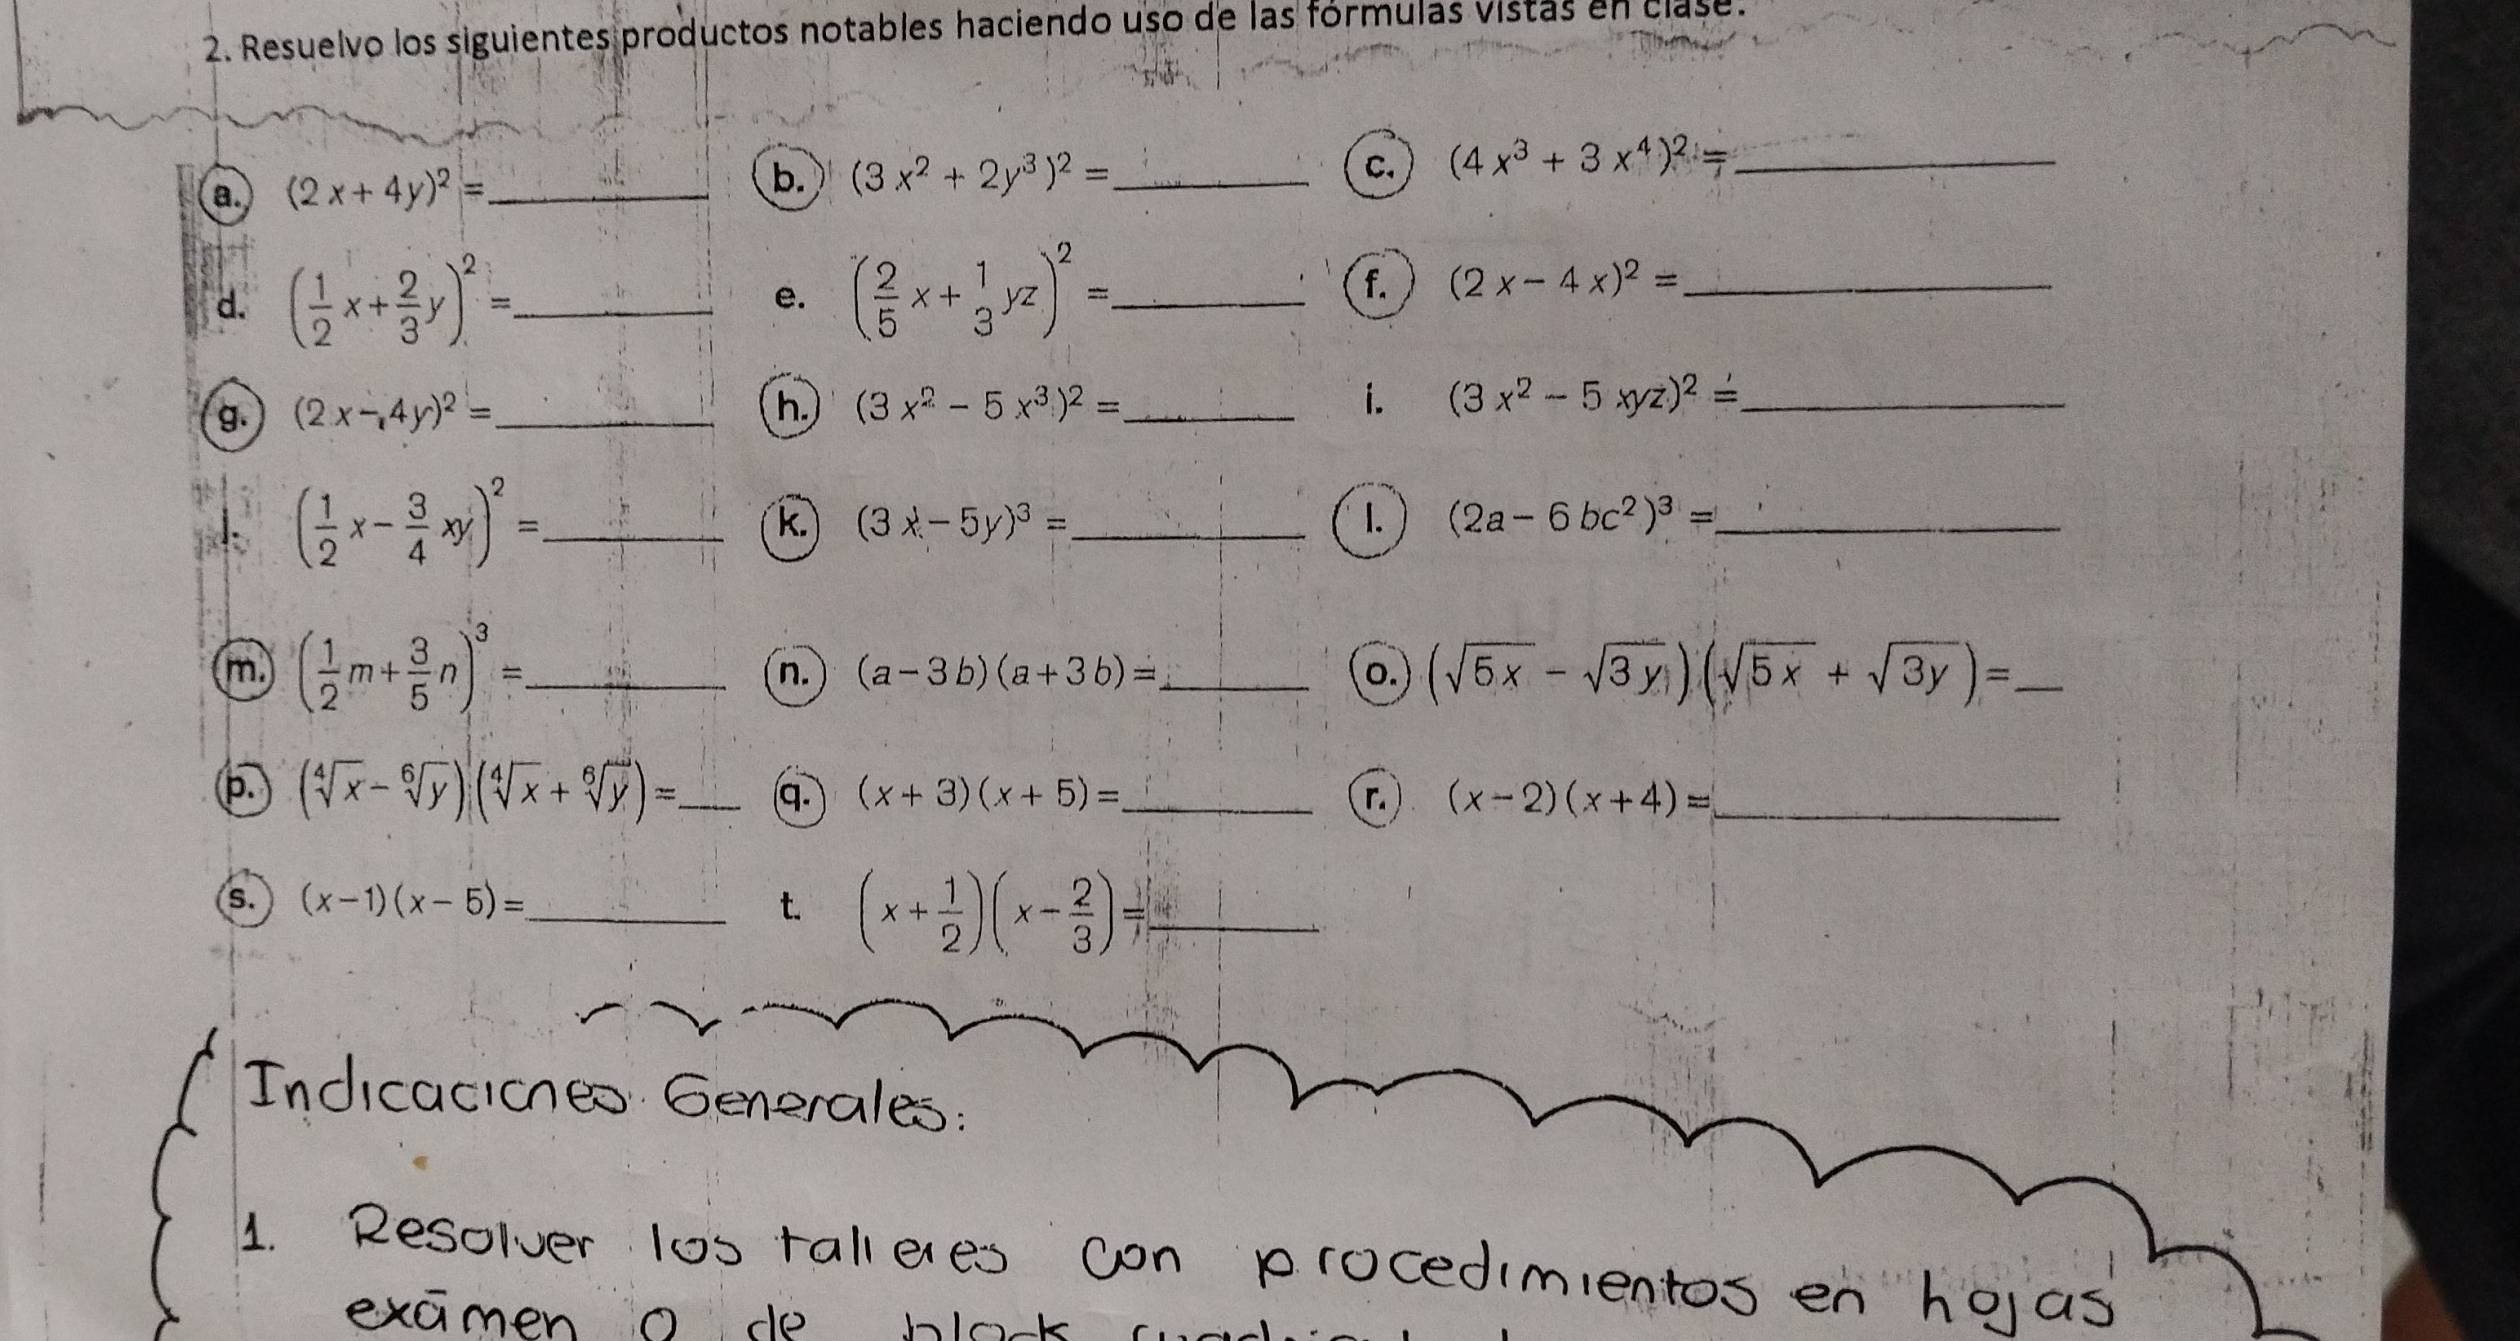 2. Resuelvo los siguientes productos notables haciendo uso de las fórmulas vistas en clase.
a. (2x + 4y)² = ________ b. (3x² + 2y³)² = ________ c. (4x³ + 3x⁴)² = ________
d. (1/2 x + 2/3 y)² = ________ e. (2/5 x + 1/3 yz)² = ________ f. (2x − 4x)² = ________
g. (2x − 4y)² = ________ h. (3x² − 5x³)² = ________ i. (3x² − 5xyz)² = ________
j. (1/2 x − 3/4 xy)² = ________ k. (3x − 5y)³ = ________ l. (2a − 6bc²)³ = ________
m. (1/2 m + 3/5 n)³ = ________ n. (a − 3b)(a + 3b) = ________ o. (√5x − √3y)(√5x + √3y) = __
p. (⁴√x − ⁶√y)(⁴√x + ⁶√y) = ___ q. (x + 3)(x + 5) = ________ r. (x − 2)(x + 4) = ________
s. (x − 1)(x − 5) = ________ t. (x + 1/2)(x − 2/3) = ________
Indicaciones Generales:
1. Resolver los talleres con procedimientos en hojas
exámen o de block